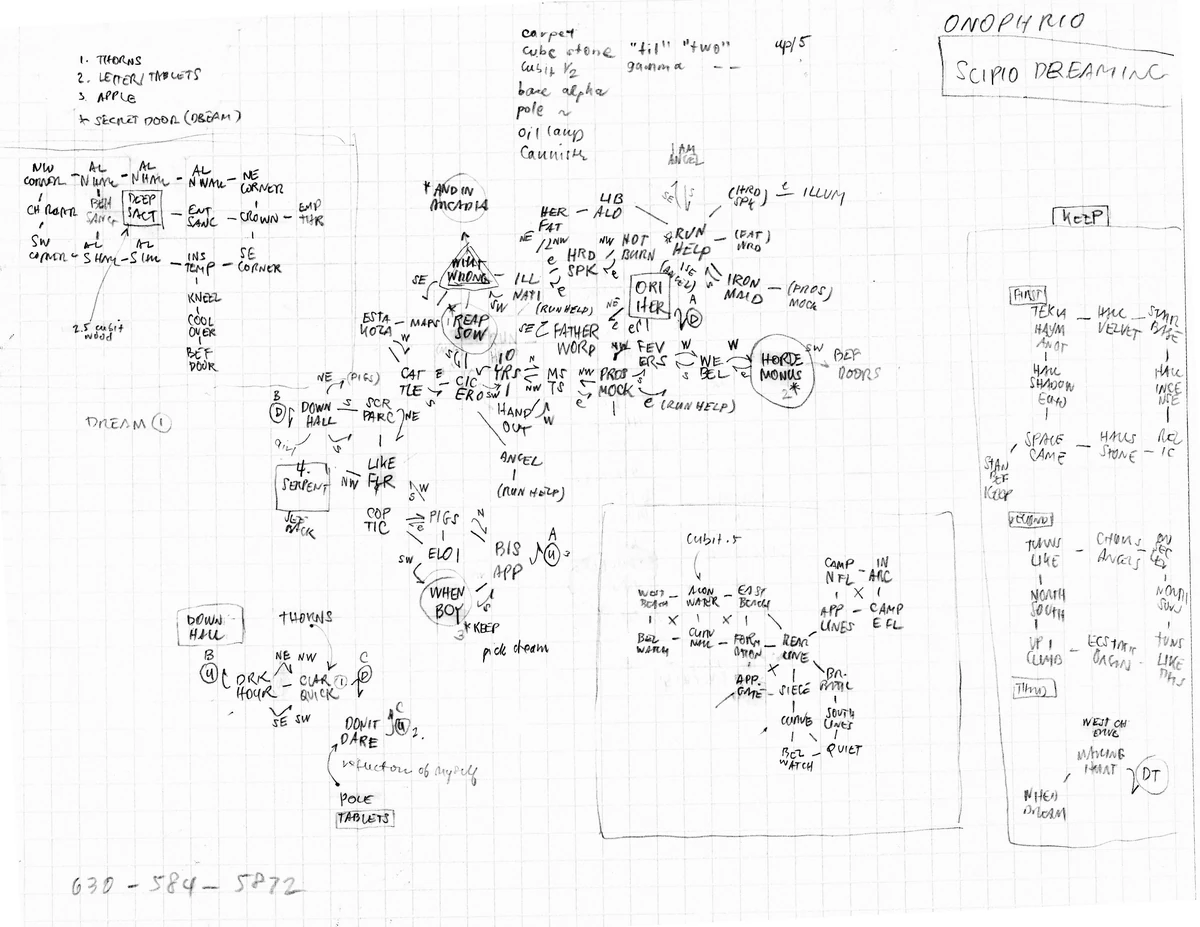 ONOPHRIO
SCIPIO DREAMING
carpet
cube stone "til" "two" up/5
cubit 1/2 gamma --
base alpha
pole ~
oil lamp
1. THORNS
2. LETTER/TABLETS
3. APPLE
* SECRET DOOR (DREAM)
NW CORNER
AL N HALL
AL N HALL
AL N HALL
NE CORNER
DEEP SACT
ENT SANC
CROWN
SW CORNER
AL S HALL
INS TEMP
SE CORNER
KNEEL
COOL OVER
BEF DOOR
2.5 cubit wood
DREAM ①
* AND IN ARCADIA
WHAT WRONG
SE
SW
REAP SOW
ESTA
MAPS
W
CAT TLE
E
S
CIC ERO
SW
I AM ANGEL
SE
S
LIB ALD
HER FAT
NE
NW
HRD SPK
NW
HOT BURN
*RUN HELP
(ANGEL)
(HRD SPK) E ILLUM
(FAT) WRD
IRON MAID
(PROS) MOCK
ILL NATI
(RUN HELP)
ORI HER
A
D
SE
FATHER WORD
YRS
N
NW
MS TS
NW
E
PROS MOCK
FEV ERS
W
S
WE BEL
W
HORDE MONUS
2*
SW
BEF DOORS
E (RUN HELP)
HAND OUT
W
ANGEL
(RUN HELP)
NE (PIGS)
B
D
DOWN HALL
S
SCR PARC
NE
4. SERPENT
NW
LIKE FLR
COP TIC
E
PIGS
N
SW
ELOI
BIS APP
A
U
WHEN BOY
3
* KEEP
pick dream
DOWN HALL
THORNS
B
U
DRK HOUR
NE NW
CLAR QUICK
①
SE SW
C
D
DON'T DARE
C
U 2.
reflection of myself
POLE
TABLETS
630-584-5872
cubit.5
WEST BEACH
MOON WATER
EAST BEACH
BEL WATCH
FORM ATION
REAR LINE
CAMP NFL
IN ARC
APP LINES
CAMP EFL
APP. GATE
SIEGE
SOUTH LINES
CURVE
BEL WATCH
QUIET
KEEP
FIRST
HALL VELVET
STAIR BASE
HALL SHADOW
HALL INCE NSE
SPACE CAME
HALLS STONE
REL IC
STAN BEF KEEP
SECOND
TURNS LIKE
ANGELS
NORTH SOUTH
UP I CLIMB
ECSTATIC ORGAN
TURNS LIKE THIS
THIRD
DT
WHEN DREAM